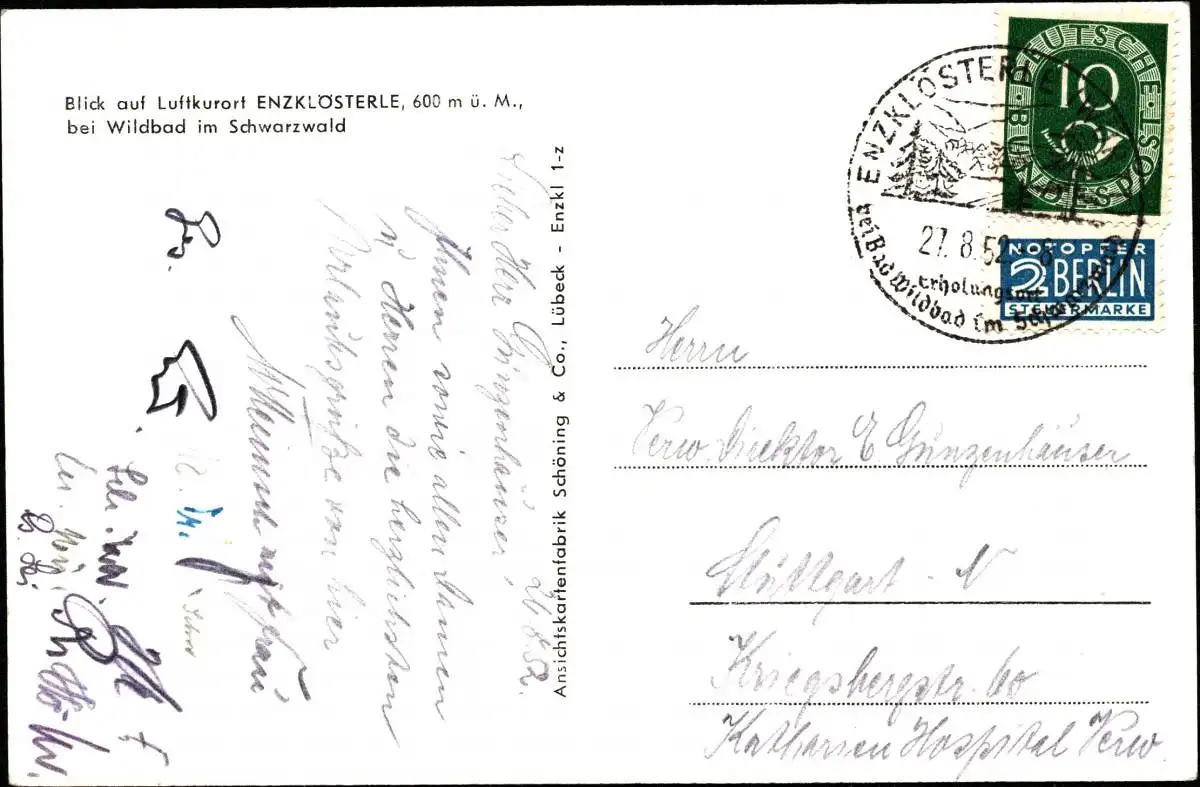 Blick auf Luftkurort ENZKLÖSTERLE, 600 m ü. M.,
bei Wildbad im Schwarzwald
DEUTSCHE BUNDESPOST
10
ENZKLÖSTERLE
27.8.52
Erholungsort
bei Bad Wildbad im Schwarzwald
NOTOPFER
2 BERLIN
STEUERMARKE
Ansichtskartenfabrik Schöning & Co., Lübeck - Enzkl 1-z
26.8.52.
Lieber Herr Günzenhäuser!
Ihnen sowie allen Ihren
Herren die herzlichsten
Urlaubsgrüße von hier
mit Frau
Herrn
Verw. Direktor E. Günzenhäuser
Stuttgart - N
Kriegsbergstr. 60
Katharinen Hospital Verw.